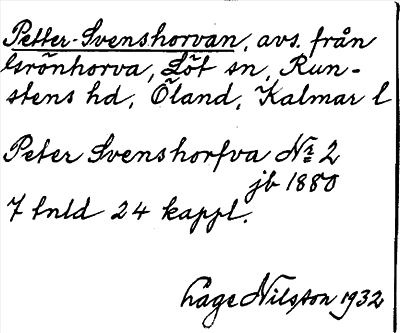 Petter-Svenshorvan, avs. från
Grönhorva, Löt sn, Run-
stens hd, Öland, Kalmar l
Peter Svenshorfva No 2
jb 1880
7 tnld 24 kappl.
Åge Nilsson 1932